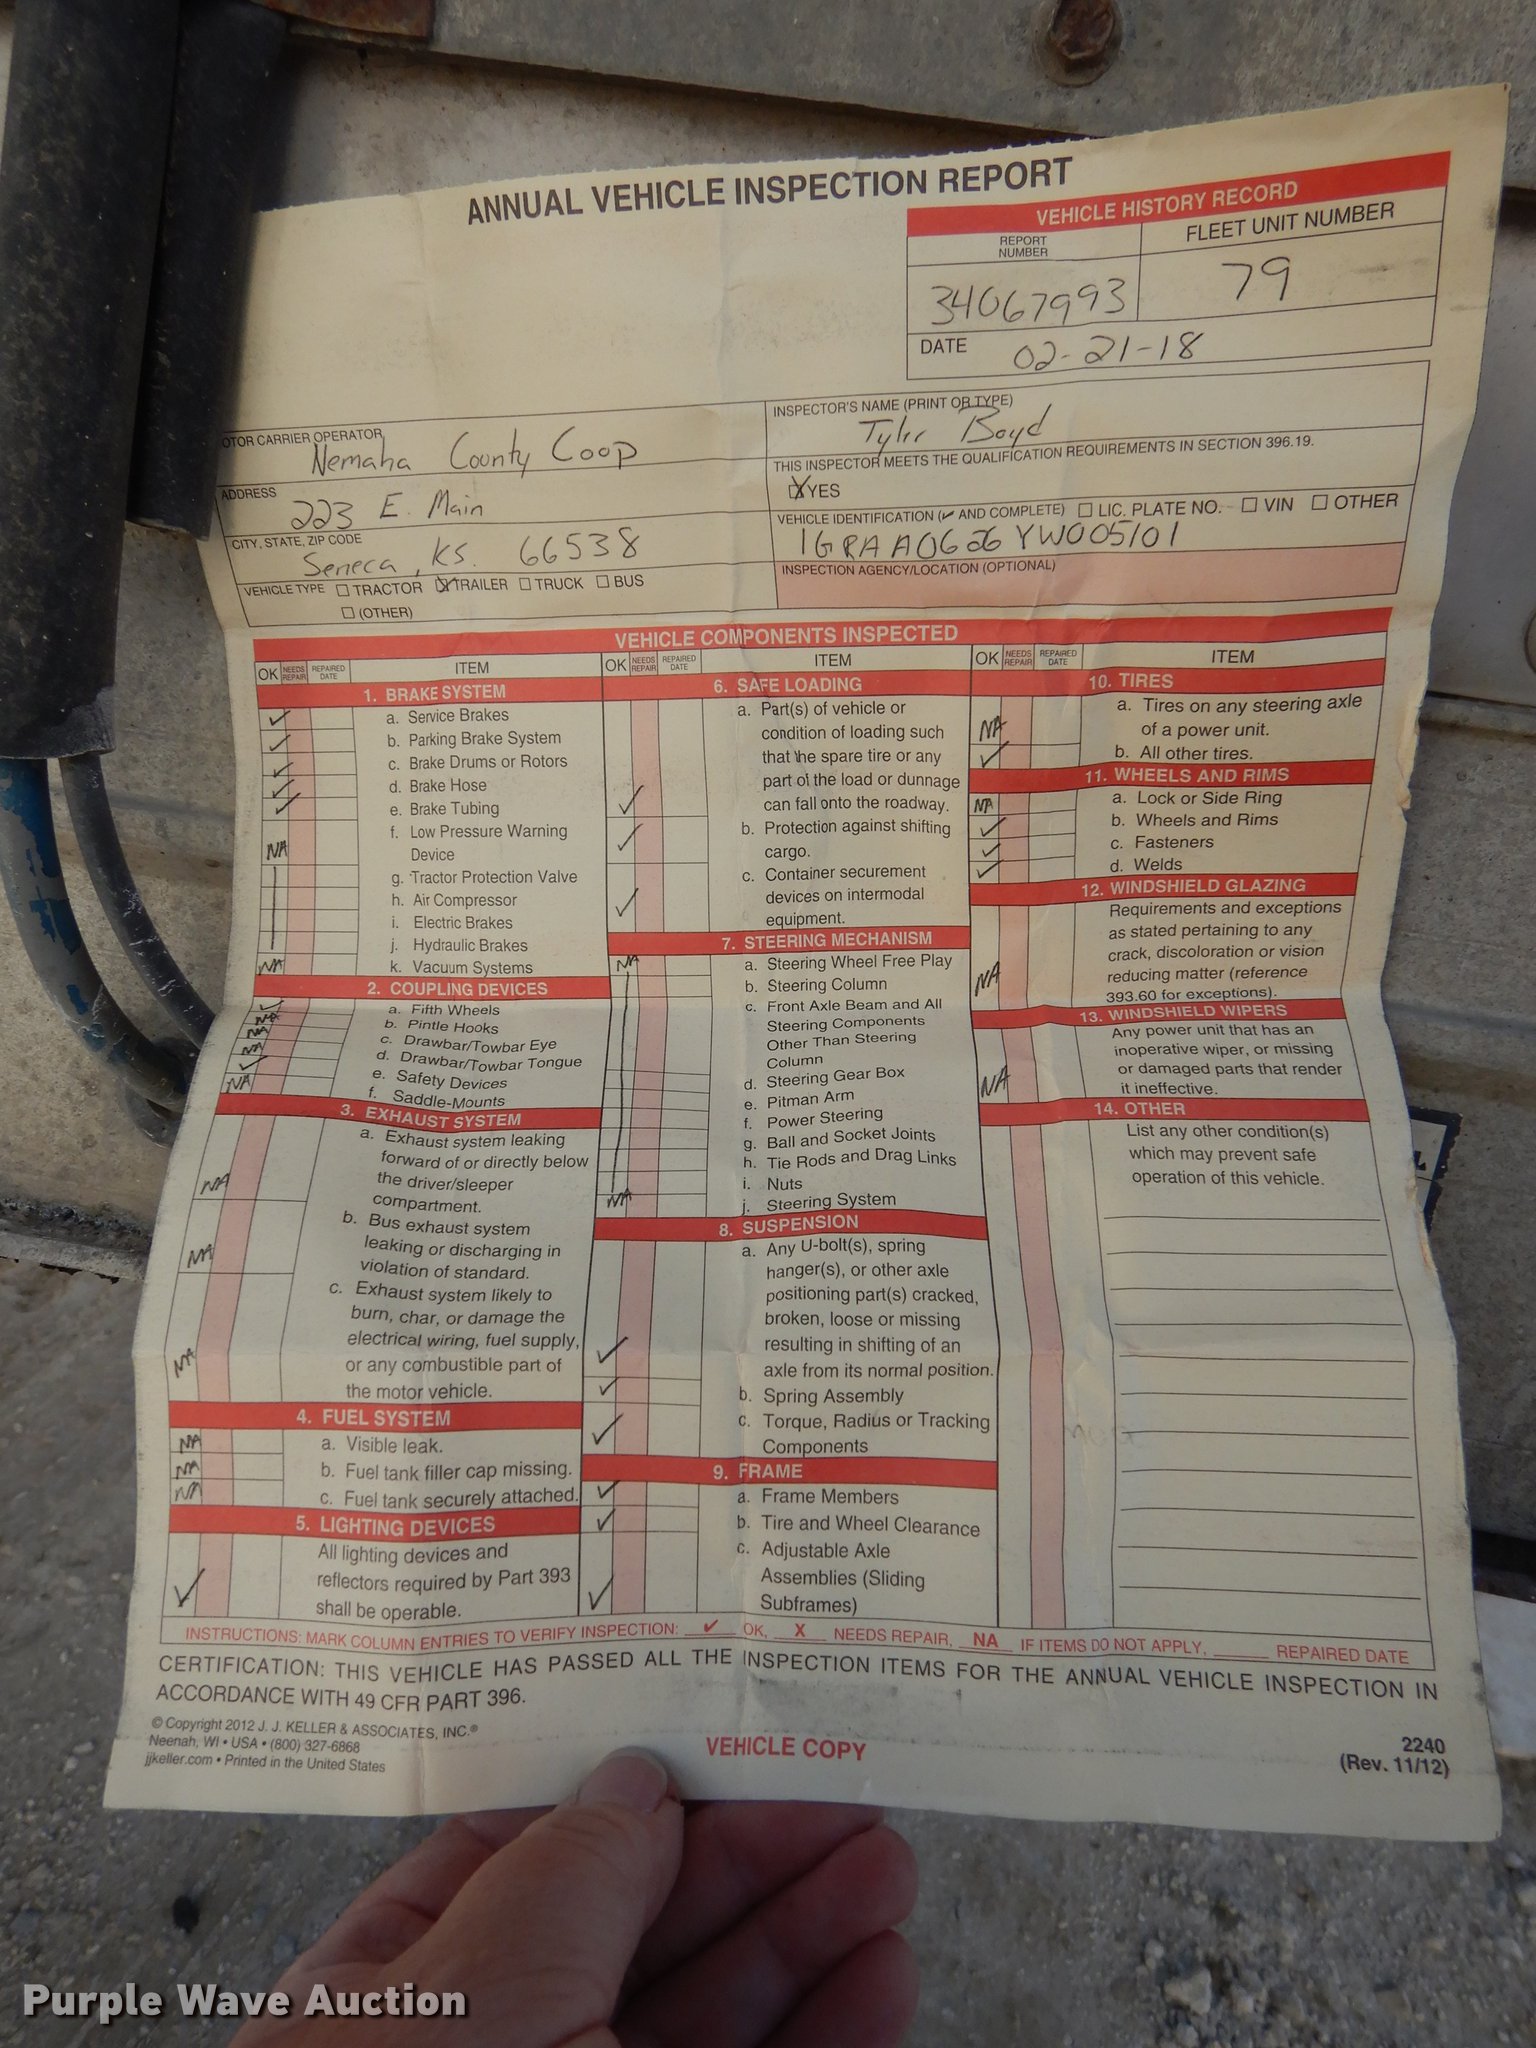 ANNUAL VEHICLE INSPECTION REPORT
VEHICLE HISTORY RECORD
REPORT NUMBER
FLEET UNIT NUMBER
34067993
79
DATE 02-21-18
OTOR CARRIER OPERATOR
Nemaha County Coop
INSPECTOR'S NAME (PRINT OR TYPE)
Tyler Boyd
ADDRESS
223 E. Main
THIS INSPECTOR MEETS THE QUALIFICATION REQUIREMENTS IN SECTION 396.19.
X YES
CITY, STATE, ZIP CODE
Seneca, KS. 66538
VEHICLE IDENTIFICATION (✓ AND COMPLETE) ☐ LIC. PLATE NO. ☐ VIN ☐ OTHER
1GRAA0626YW005101
VEHICLE TYPE ☐ TRACTOR ☒ TRAILER ☐ TRUCK ☐ BUS
☐ (OTHER)
INSPECTION AGENCY/LOCATION (OPTIONAL)
VEHICLE COMPONENTS INSPECTED
OK NEEDS REPAIR REPAIRED DATE ITEM
1. BRAKE SYSTEM
✓ a. Service Brakes
✓ b. Parking Brake System
✓ c. Brake Drums or Rotors
✓ d. Brake Hose
✓ e. Brake Tubing
NA f. Low Pressure Warning
Device
g. Tractor Protection Valve
h. Air Compressor
i. Electric Brakes
j. Hydraulic Brakes
NA k. Vacuum Systems
2. COUPLING DEVICES
✓ a. Fifth Wheels
NA b. Pintle Hooks
NA c. Drawbar/Towbar Eye
NA d. Drawbar/Towbar Tongue
✓ e. Safety Devices
NA f. Saddle-Mounts
3. EXHAUST SYSTEM
a. Exhaust system leaking
forward of or directly below
the driver/sleeper
NA compartment.
b. Bus exhaust system
leaking or discharging in
NA violation of standard.
c. Exhaust system likely to
burn, char, or damage the
electrical wiring, fuel supply,
or any combustible part of
NA the motor vehicle.
4. FUEL SYSTEM
NA a. Visible leak.
NA b. Fuel tank filler cap missing.
NA c. Fuel tank securely attached.
5. LIGHTING DEVICES
All lighting devices and
reflectors required by Part 393
✓ shall be operable.
OK NEEDS REPAIR REPAIRED DATE ITEM
6. SAFE LOADING
a. Part(s) of vehicle or
condition of loading such
that the spare tire or any
part of the load or dunnage
✓ can fall onto the roadway.
b. Protection against shifting
✓ cargo.
c. Container securement
devices on intermodal
✓ equipment.
7. STEERING MECHANISM
NA a. Steering Wheel Free Play
b. Steering Column
c. Front Axle Beam and All
Steering Components
Other Than Steering
Column
d. Steering Gear Box
e. Pitman Arm
f. Power Steering
g. Ball and Socket Joints
h. Tie Rods and Drag Links
i. Nuts
NA j. Steering System
8. SUSPENSION
a. Any U-bolt(s), spring
hanger(s), or other axle
positioning part(s) cracked,
broken, loose or missing
resulting in shifting of an
✓ axle from its normal position.
✓ b. Spring Assembly
✓ c. Torque, Radius or Tracking
Components
9. FRAME
✓ a. Frame Members
✓ b. Tire and Wheel Clearance
c. Adjustable Axle
Assemblies (Sliding
✓ Subframes)
OK NEEDS REPAIR REPAIRED DATE ITEM
10. TIRES
a. Tires on any steering axle
NA of a power unit.
✓ b. All other tires.
11. WHEELS AND RIMS
NA a. Lock or Side Ring
✓ b. Wheels and Rims
✓ c. Fasteners
✓ d. Welds
12. WINDSHIELD GLAZING
Requirements and exceptions
as stated pertaining to any
crack, discoloration or vision
NA reducing matter (reference
393.60 for exceptions).
13. WINDSHIELD WIPERS
Any power unit that has an
inoperative wiper, or missing
or damaged parts that render
NA it ineffective.
14. OTHER
List any other condition(s)
which may prevent safe
operation of this vehicle.
INSTRUCTIONS: MARK COLUMN ENTRIES TO VERIFY INSPECTION: ✓ OK, X NEEDS REPAIR, NA IF ITEMS DO NOT APPLY, ____ REPAIRED DATE
CERTIFICATION: THIS VEHICLE HAS PASSED ALL THE INSPECTION ITEMS FOR THE ANNUAL VEHICLE INSPECTION IN
ACCORDANCE WITH 49 CFR PART 396.
© Copyright 2012 J. J. KELLER & ASSOCIATES, INC.®
Neenah, WI • USA • (800) 327-6868
jjkeller.com • Printed in the United States
VEHICLE COPY
2240
(Rev. 11/12)
Purple Wave Auction